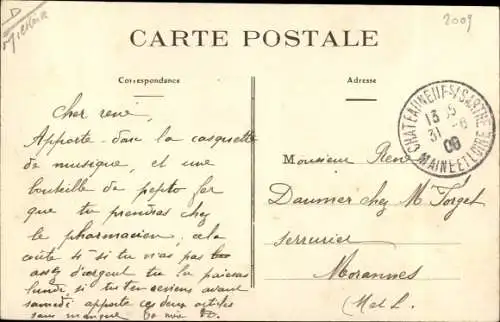 2009
CARTE POSTALE
Correspondance
Adresse
CHATEAUNEUF S/SARTHE
13 5
31 -8
08
MAINE ET LOIRE
Cher rené,
Apporte-donc la casquette
de musique, et une
bouteille de pepto fer
que tu prendras chez
le pharmacien, cela
coûte 4f si tu n'as pas
assez d'argent tu la paieras
lundi, si tu t'en venais avant
samedi apporte ces deux articles
sans manquer
Monsieur René
Daumer chez Mr Forget
serrurier
Morannes
(M et L.